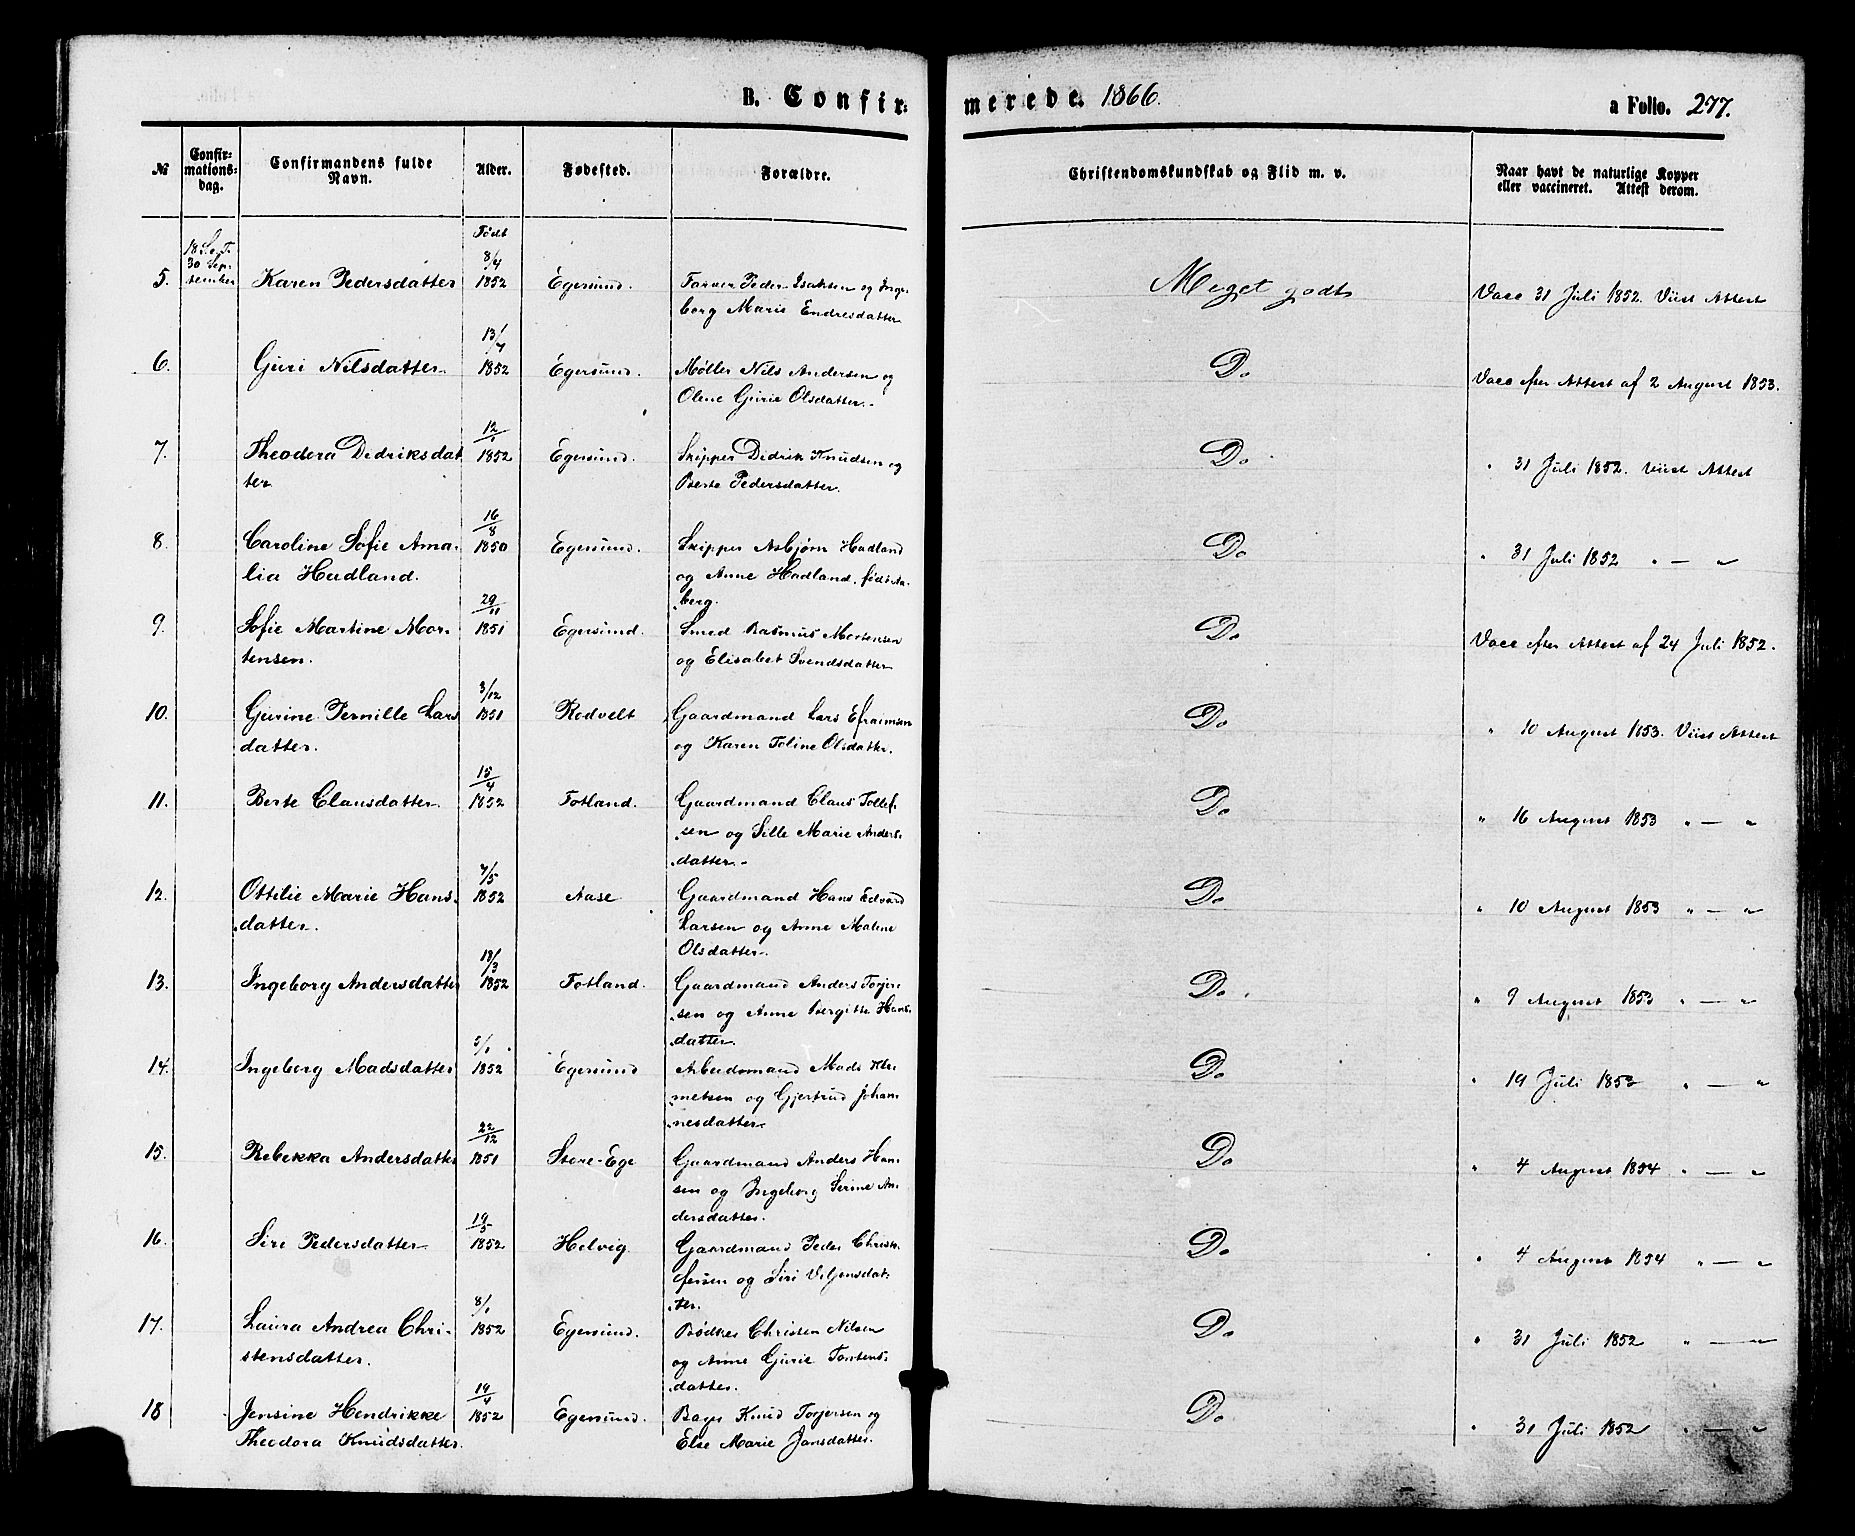 B. Confir-
merede. 1866.
a Folio. 277.
№
Confir-
mations-
dag.
Confirmandens fulde
Navn.
Alder.
Fødested.
Forældre.
Christendomskundskab og Flid m. v.
Naar havt de naturlige Kopper
eller vaccineret. Attest derom.
18 S. e. T.
30 Sep-
tember
Født
5. Karen Pedersdatter 8/4 1852 Egersund. Farver Peder Isaksen og Inge-
borg Marie Endresdatter
Meget godt
Vacc 31 Juli 1852. Viist Attest
6. Guri Nilsdatter. 13/4 1852 Egersund. Møller Nils Andersen og
Olene Gurie Olsdatter.
Do
Vacc efter Attest af 2 August 1853.
7. Theodora Dedriksdat- 12/1 1852 Egersund. Skipper Didrik Knudsen og
ter Berte Pedersdatter.
Do
" 31 Juli 1852. Viist Attest
8. Caroline Sofie Ama- 16/8 1850 Egersund. Skipper Asbjørn Hadland
lia Hadland. og Anne Hadland, født Aa-
berg.
Do
" 31 Juli 1852 " — "
9. Sofie Martine Mor- 29/11 1851 Egersund. Smed Rasmus Mortensen
tensen. og Elisabet Svendsdatter
Do
Vacc efter Attest af 24 Juli 1852.
10. Gurine Pernille Lars 3/12 1851 Rodvelt Gaardmand Lars Efraimsen
datter. og Karen Toline Olsdatter.
Do
" 10 August 1853. Viist Attest
11. Berte Clausdatter. 15/4 1852 Fotland. Gaardmand Claus Tollef-
sen og Sille Marie Anders-
datter.
Do
" 16 August 1853 " — "
12. Ottilie Marie Hans- 7/5 1852 Aase Gaardmand Hans Edvard
datter. Larsen og Anne Malene
Olsdatter.
Do
" 10 August 1853 " — "
13. Ingeborg Andersdatter 13/3 1852 Fotland. Gaardmand Anders Torjer-
sen og Anne Bergitte Hans-
datter.
Do
" 9 August 1853 " — "
14. Ingeborg Madsdatter 5/1 1852 Egersund Arbeidsmand Mads
metsen og Gjertrud Johan-
nesdatter.
Do
" 19 Juli 1853 " — "
15. Rebekka Andersdatter 22/12 1851 Store-Ege Gaardmand Anders Han-
sen og Ingeborg Serine An-
dersdatter.
Do
" 4 August 1854 " — "
16. Siri Pedersdatter 19/5 1852 Helvig Gaardmand Peder Christ-
fersen og Siri Veljensdat-
ter.
Do
" 4 August 1854 " — "
17. Laura Andrea Chri- 8/1 1852 Egersund. Bødker Christen Nilsen
stensdatter. og Anne Gurie Tostens-
datter.
Do
" 31 Juli 1852 " — "
18 Jensine Hendrikke 19/4 1852 Egersund. Bager Knud Torjersen og
Theodora Knudsdatter. Else Marie Jansdatter.
Do
" 31 Juli 1852 " — "